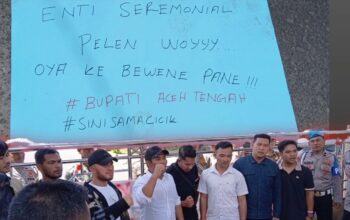 ENTI SEREMONIAL
PELEN WOYYY...
OYA KE BEWENE PANE!!!
# BUPATI ACEH TENGAH
#SINISAMACICIK